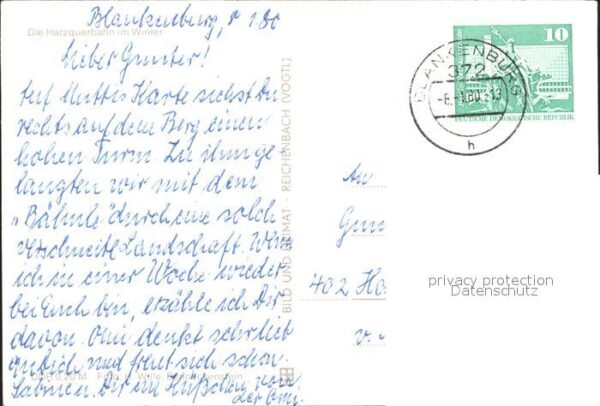 Blankenburg, 8 1.80
Die Harzquerbahn im Winter
Lieber Gunter!
Auf Muttis Karte siehst Du
rechts auf dem Berg einen
hohen Turm. Zu ihm ge
langten wir mit dem
„Bähnle" durch eine solch
verschneite Landschaft. Wenn
ich in einer Woche wieder
bei Euch bin, erzähle ich Dir
davon. Omi denkt sehr lieb
an Dich und freut sich schon.
Dir ein Küßchen von
der Omi.
BILD UND HEIMAT · REICHENBACH (VOGTL)
10
DEUTSCHE DEMOKRATISCHE REPUBLIK
BLANKENBURG
372
-8.-1.80.-13
h
An
Gun
402 Ha
privacy protection
Datenschutz